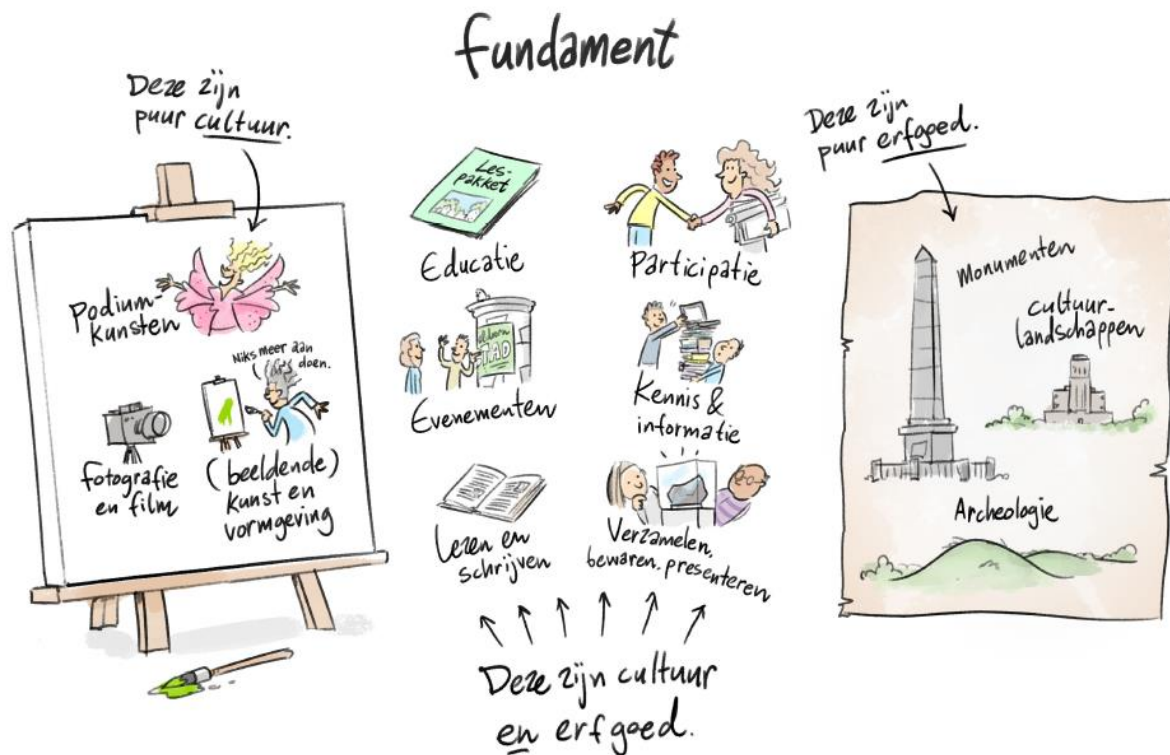 fundament
Deze zijn
puur cultuur.
Podium-
kunsten
Niks meer aan
doen.
fotografie
en film
(beeldende)
kunst en
vormgeving
Les-
pakket
Educatie
Participatie
TAD
Evenementen
Kennis &
informatie
Lezen en
schrijven
Verzamelen,
bewaren, presenteren
Deze zijn cultuur
en erfgoed.
Deze zijn
puur erfgoed.
Monumenten
Cultuur-
landschappen
Archeologie